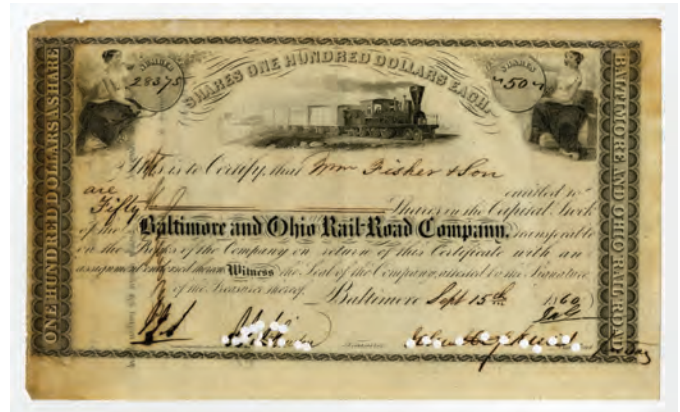 NUMBER
28375
SHARES ONE HUNDRED DOLLARS EACH.
SHARES
50
ONE HUNDRED DOLLARS A SHARE
BALTIMORE AND OHIO RAILROAD
This is to Certify, that Wm Fisher & Son
are entitled to
Fifty Shares in the Capital Stock
of the Baltimore and Ohio Rail-Road Company, transferable
on the Books of the Company on return of this Certificate with an
assignment endorsed thereon Witness the Seal of the Company, attested by the Signature
of the Treasurer thereof. Baltimore Sept 15th 1860